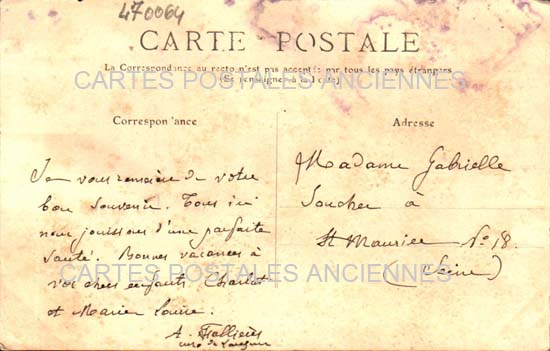 470064
CARTE POSTALE
La Correspondance au recto n'est pas acceptée par tous les pays étrangers
(Se renseigner à la Poste)
CARTES POSTALES ANCIENNES
Correspondance
Je vous remercie de votre
bon souvenir. Tous ici
nous jouissons d'une parfaite
santé. Bonnes vacances à
vos chers enfants Charlot
et Marie Louise.
A. Fallières
curé de
Adresse
Madame Gabrielle
Soucher à
St Maurice No 18.
(Seine)
CARTES POSTALES ANCIENNES